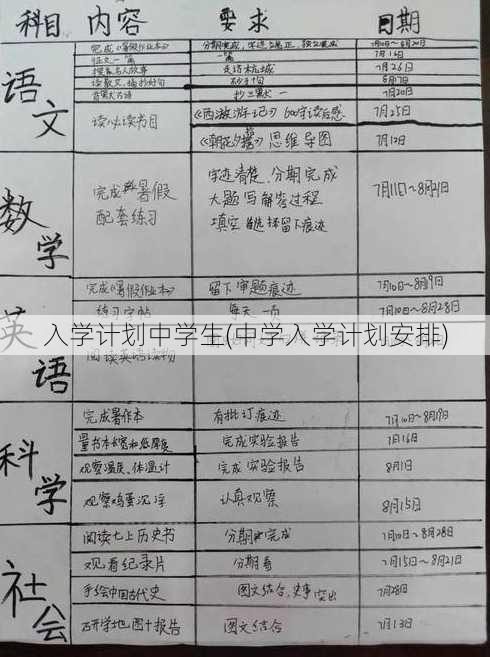 科目 内容 要求 日期
语文
完成《暑假作业本》 分期完成，字迹端正，独立完成 7月10日~8月20日
征文一篇 一篇 7月16日
搜集名人故事 走访杭城 7月26日
读散文，摘抄好句 8月7日
抄三默一 7月20日
读必读书目 《西游记》600字读后感 7月25日
《朝花夕拾》思维导图 7月12日
数学
完成暑假配套练习 字迹清楚，分期完成 7月11日~8月21日
大题写解答过程
填空选择留下痕迹
英语
完成《暑假作业本》 留下审题痕迹 7月10日~8月9日
练习字帖 每天一页 7月10日~8月28日
阅读英语读物
入学计划中学生(中学入学计划安排)
科学
完成暑作本 有批订痕迹 7月10日~8月19日
量书本宽和纸厚度 完成实验报告 7月16日
观察温度、体温计 完成实验报告 8月1日
观察鸡蛋沉浮 认真观察 8月15日
社会
阅读七上历史书 分期完成 7月10日~8月28日
观看纪录片 分期看 7月15日~8月21日
手绘中国古代史 图文结合，史事突出 7月28日
研学地图+报告 图文结合 7月13日